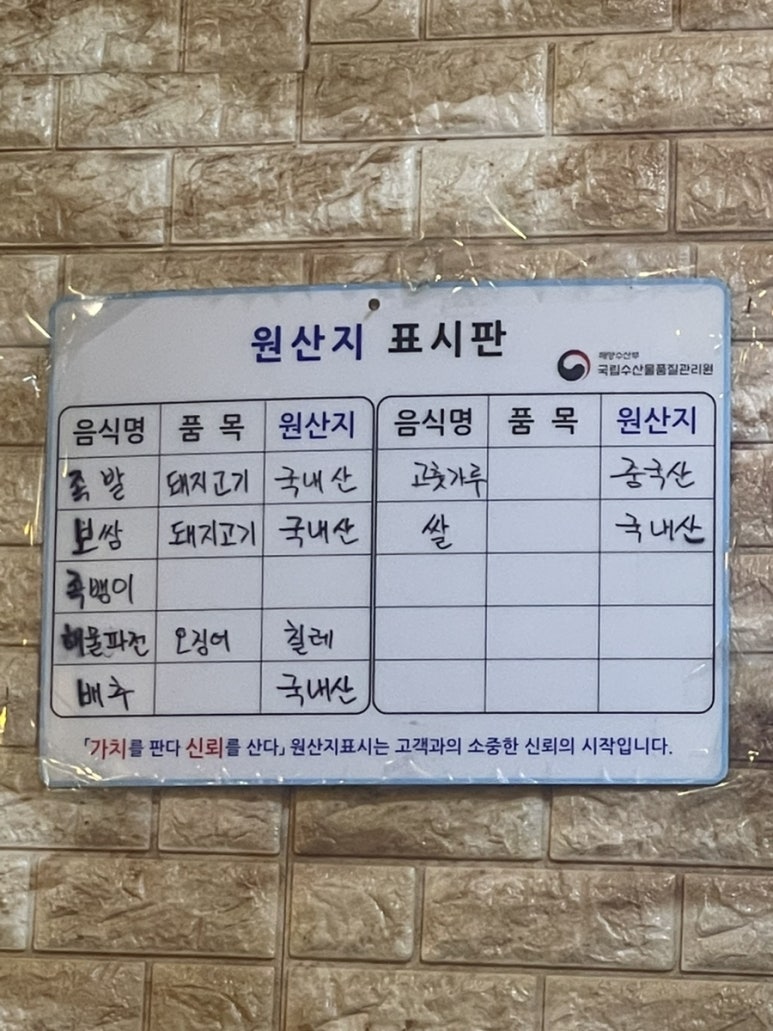 원산지 표시판
해양수산부
국립수산물품질관리원
음식명 품 목 원산지 음식명 품 목 원산지
족발 돼지고기 국내산 고춧가루 중국산
보쌈 돼지고기 국내산 쌀 국내산
족뱅이
해물파전 오징어 칠레
배추 국내산
「가치를 판다 신뢰를 산다」 원산지표시는 고객과의 소중한 신뢰의 시작입니다.